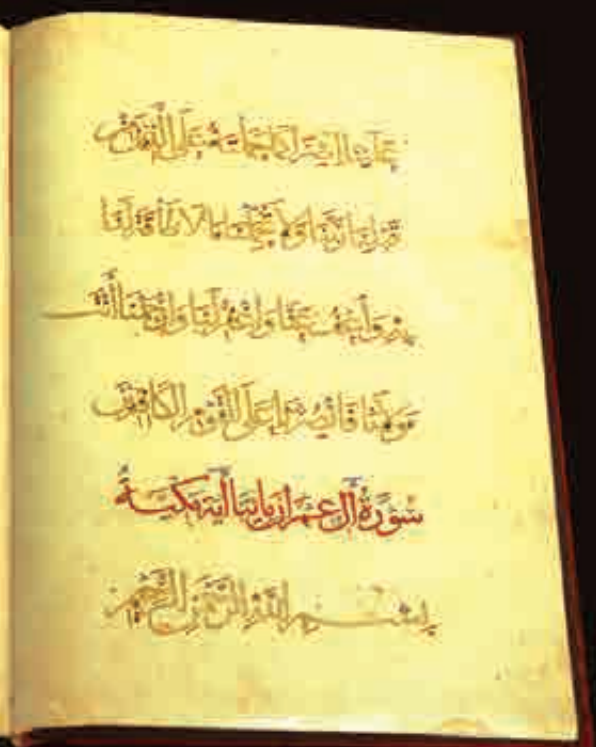 علينا إصرا كما حملته على الذين من
قبلنا ربنا ولا تحملنا ما لا طاقة لنا
به واعف عنا واغفر لنا وارحمنا أنت
مولانا فانصرنا على القوم الكافرين
سورة آل عمران مايتا آية مكية
بسم الله الرحمن الرحيم